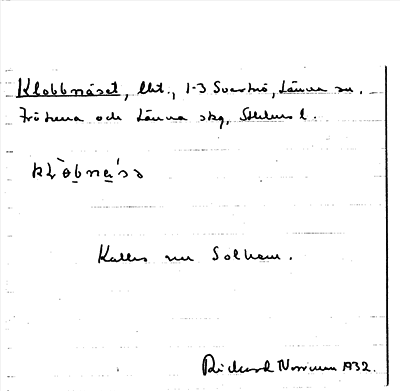 Klobbnäset, lht., 1-3 Svartnö, Länna sn.
Frötuna och Länna skg, Sthlms l.
klòbnä́s
Kallas nu Solhem.
Rickard Norrman 1932.